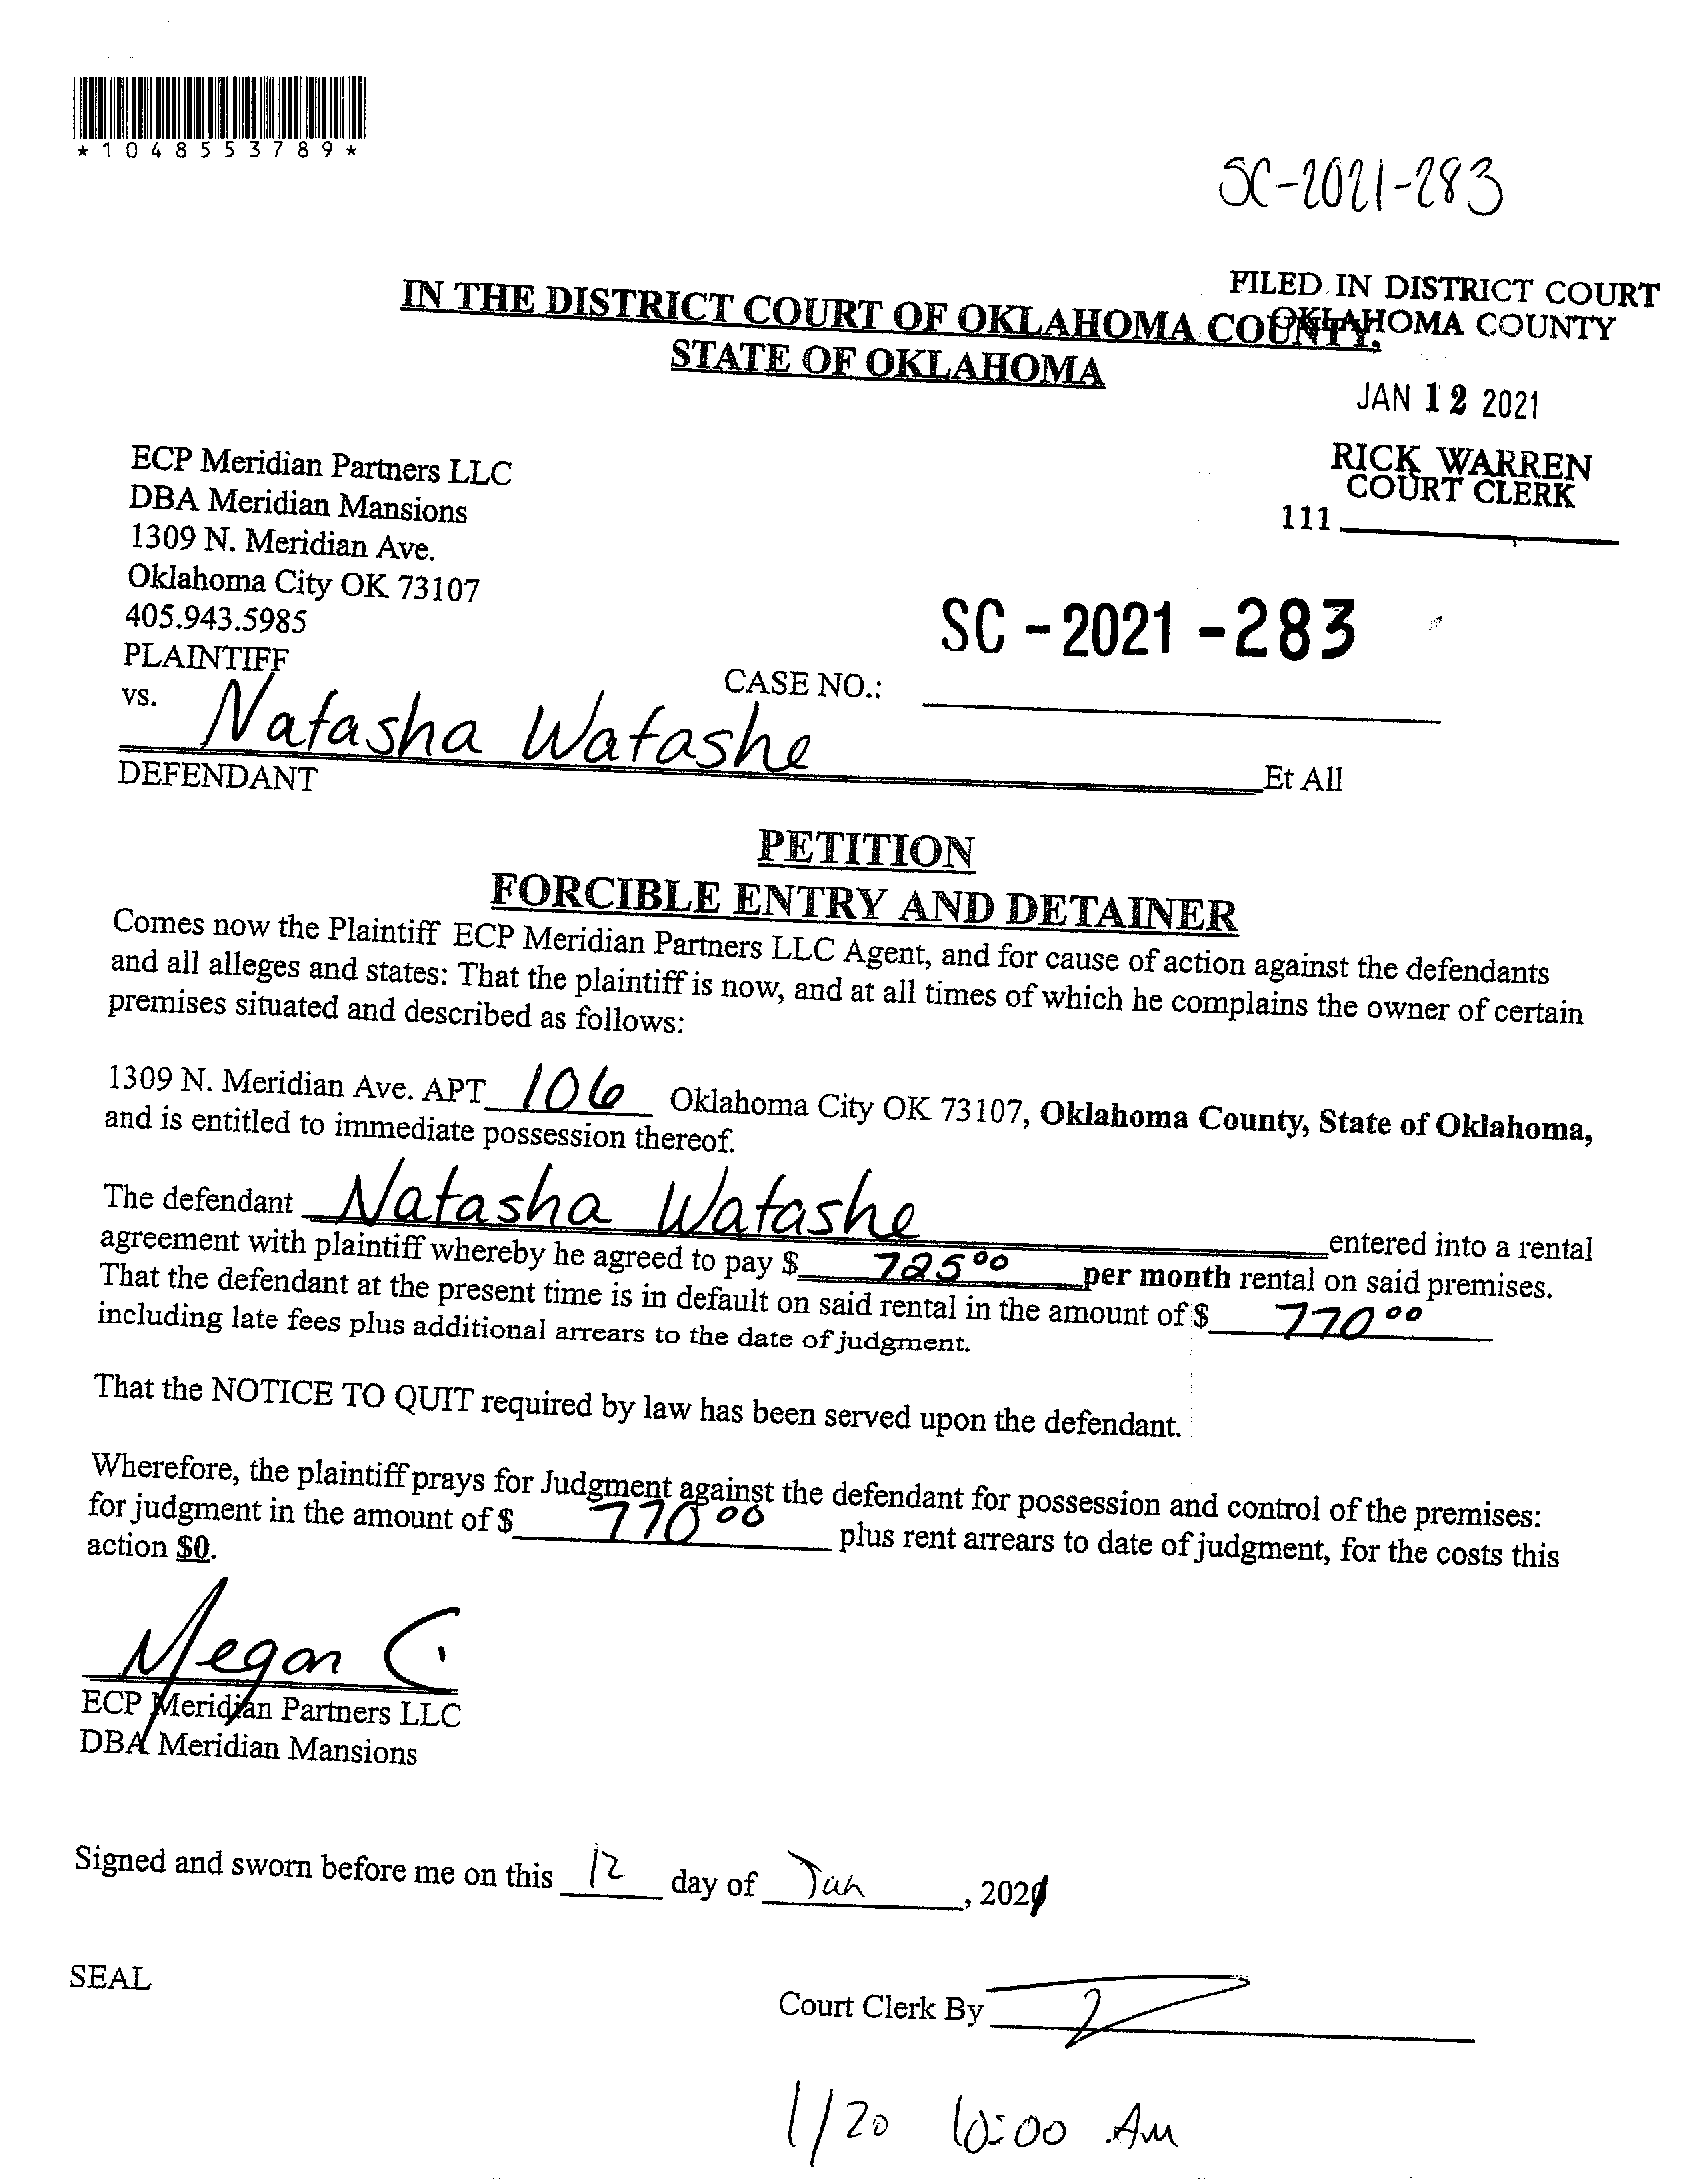 *1048553789*
SC-2021-283
FILED IN DISTRICT COURT
OKLAHOMA COUNTY
IN THE DISTRICT COURT OF OKLAHOMA COUNTY,
STATE OF OKLAHOMA
JAN 12 2021
RICK WARREN
COURT CLERK
111
ECP Meridian Partners LLC
DBA Meridian Mansions
1309 N. Meridian Ave.
Oklahoma City OK 73107
405.943.5985
PLAINTIFF
vs.
CASE NO.: SC-2021-283
Natasha Watashe Et All
DEFENDANT
PETITION
FORCIBLE ENTRY AND DETAINER
Comes now the Plaintiff ECP Meridian Partners LLC Agent, and for cause of action against the defendants
and all alleges and states: That the plaintiff is now, and at all times of which he complains the owner of certain
premises situated and described as follows:
1309 N. Meridian Ave. APT 106 Oklahoma City OK 73107, Oklahoma County, State of Oklahoma,
and is entitled to immediate possession thereof.
The defendant Natasha Watashe entered into a rental
agreement with plaintiff whereby he agreed to pay $ 725⁰⁰ per month rental on said premises.
That the defendant at the present time is in default on said rental in the amount of $ 770⁰⁰
including late fees plus additional arrears to the date of judgment.
That the NOTICE TO QUIT required by law has been served upon the defendant.
Wherefore, the plaintiff prays for Judgment against the defendant for possession and control of the premises:
for judgment in the amount of $ 770⁰⁰ plus rent arrears to date of judgment, for the costs this
action $0.
Megan C.
ECP Meridian Partners LLC
DBA Meridian Mansions
Signed and sworn before me on this 12 day of Jan, 2021
SEAL
Court Clerk By
1/20 10:00 AM